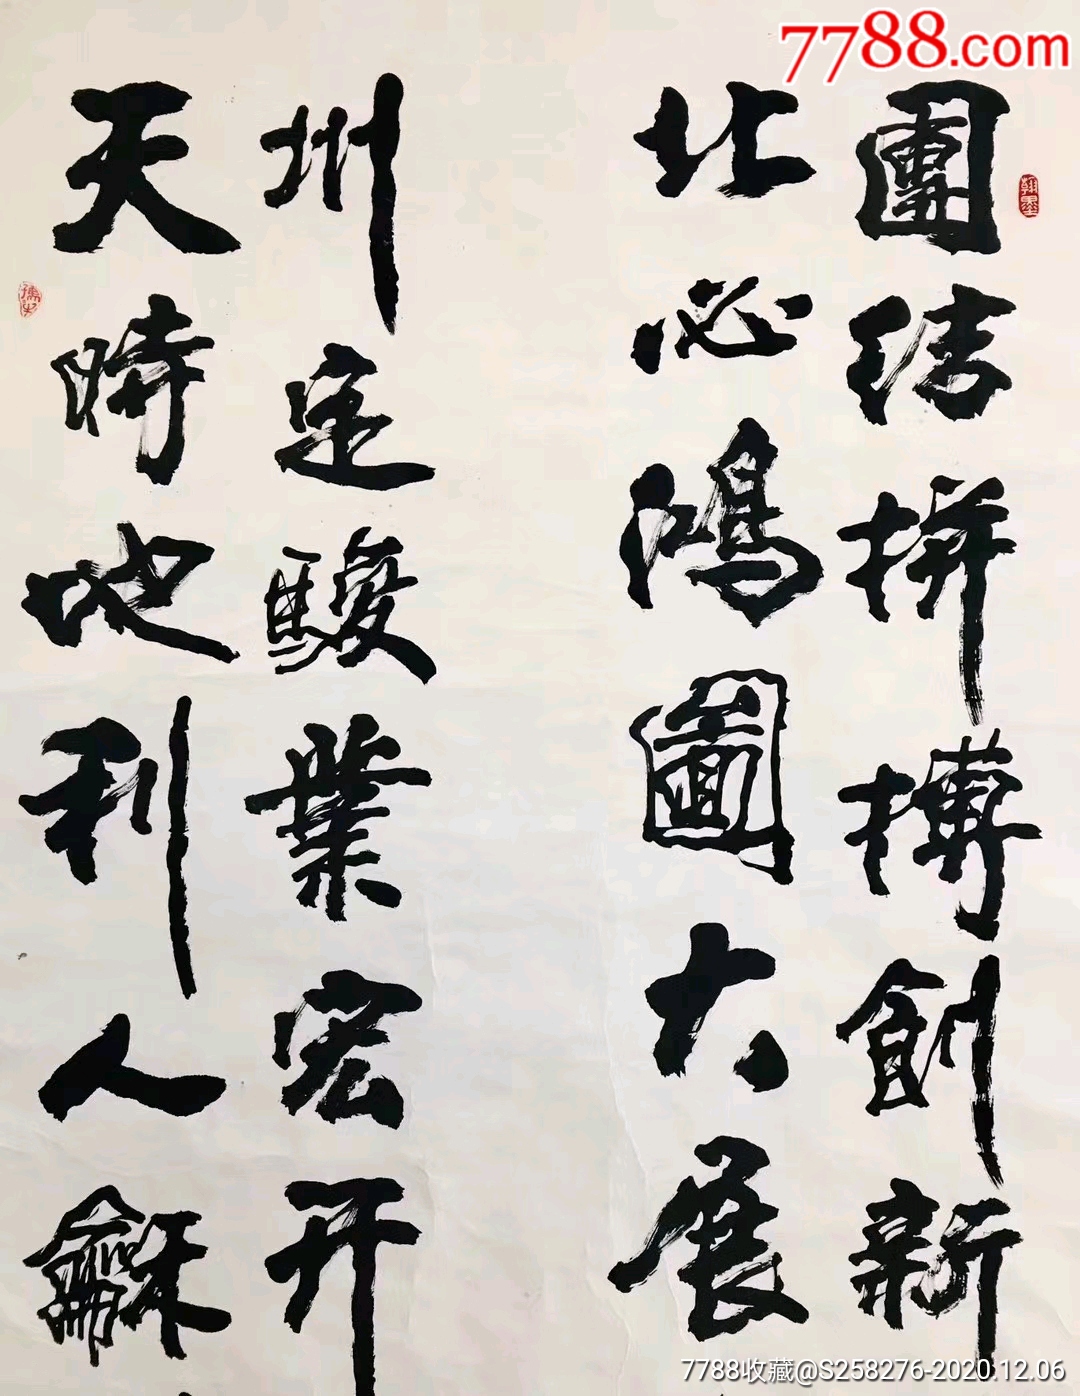 7788.com
團结拼搏創新
北必鴻圖大展
州定駿業宏开
天時地利人龢
翰墨
7788收藏@S258276-2020.12.06